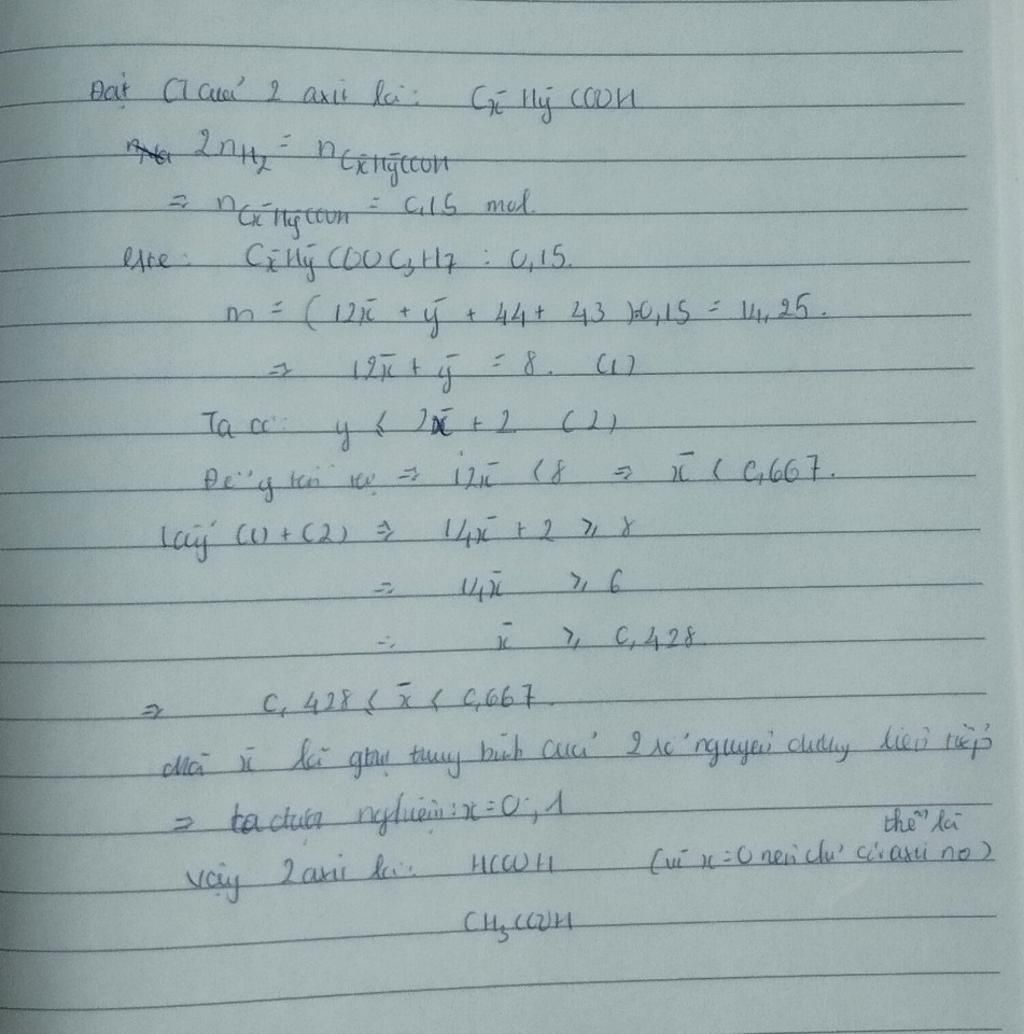 Đặt CT của 2 axit là: Cx̄Hȳ COOH
2nH₂ = nCx̄HȳCOOH
⇒ nCx̄HȳCOOH = 0,15 mol.
este: Cx̄Hȳ COO C₃H7 : 0,15.
m = (12x̄ + ȳ + 44 + 43).0,15 = 14,25.
⇒ 12x̄ + ȳ = 8. (1)
Ta có: y ≤ 2x̄ + 2 (2)
Để ý ⇒ 12x̄ < 8 ⇒ x̄ < 0,667.
Lấy (1) + (2) ⇒ 14x̄ + 2 ⩾ 8
⇒ 14x̄ ⩾ 6
⇒ x̄ ⩾ 0,428
⇒ 0,428 ≤ x̄ < 0,667.
Mà x̄ là gtrị trung bình của 2 số nguyên dương liên tiếp
⇒ ta được nghiệm: x = 0; 1
Vậy 2 axit là: HCOOH (vì x = 0 nên chỉ có thể là axit no)
CH₃COOH